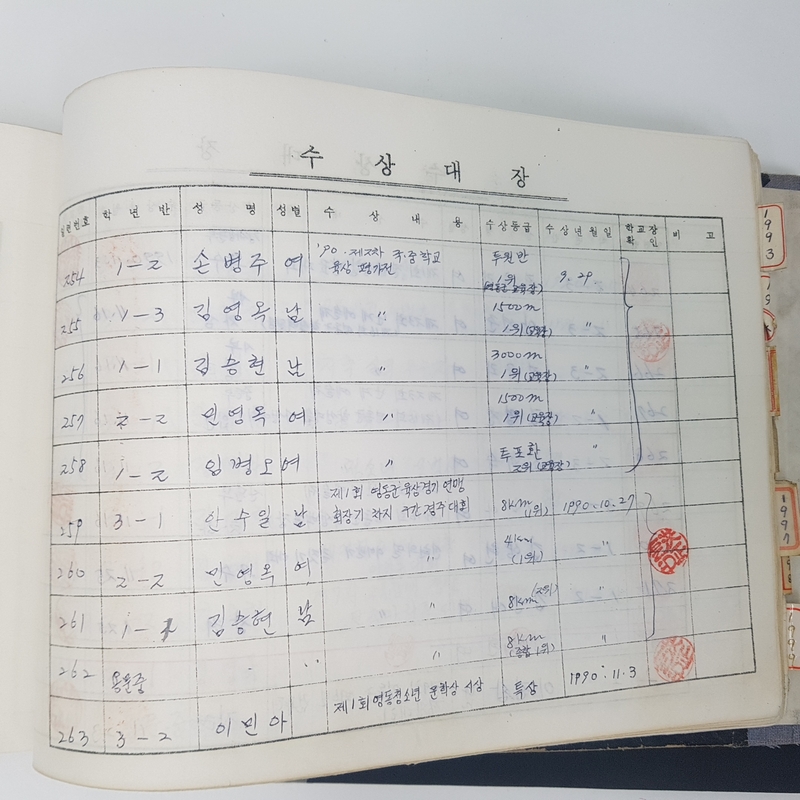 수 상 대 장
일련번호 학 년 반 성 명 성별 수 상 내 용 수상등급 수상년월일 학교장확인 비 고
254 1-2 손병주 여 '90. 제2차 국·중학교 육상 평가전 투원반 1위 (영동군 교육장) 9. 29
255 1-3 김영옥 남 〃 1500m 1위 (교육장) 〃
256 1-1 김승현 남 〃 3000m 1위 (교육장)
257 2-2 민영옥 여 〃 1500m 1위 (교육장) 〃
258 1-2 임병오 여 〃 투포환 2위 (교육장) 〃
259 3-1 안수일 남 제1회 영동군 육상경기 연맹 회장기 차지 구간경주대회 8km (1위) 1990.10.27
260 2-2 민영옥 여 〃 4km (1위) 〃
261 1-1 김승현 남 〃 8km (2위)
262 〃 8km (종합 1위) 〃
263 3-2 이민아 제1회 영동청소년 문학상 시상 특상 1990. 11. 3
1993
1997